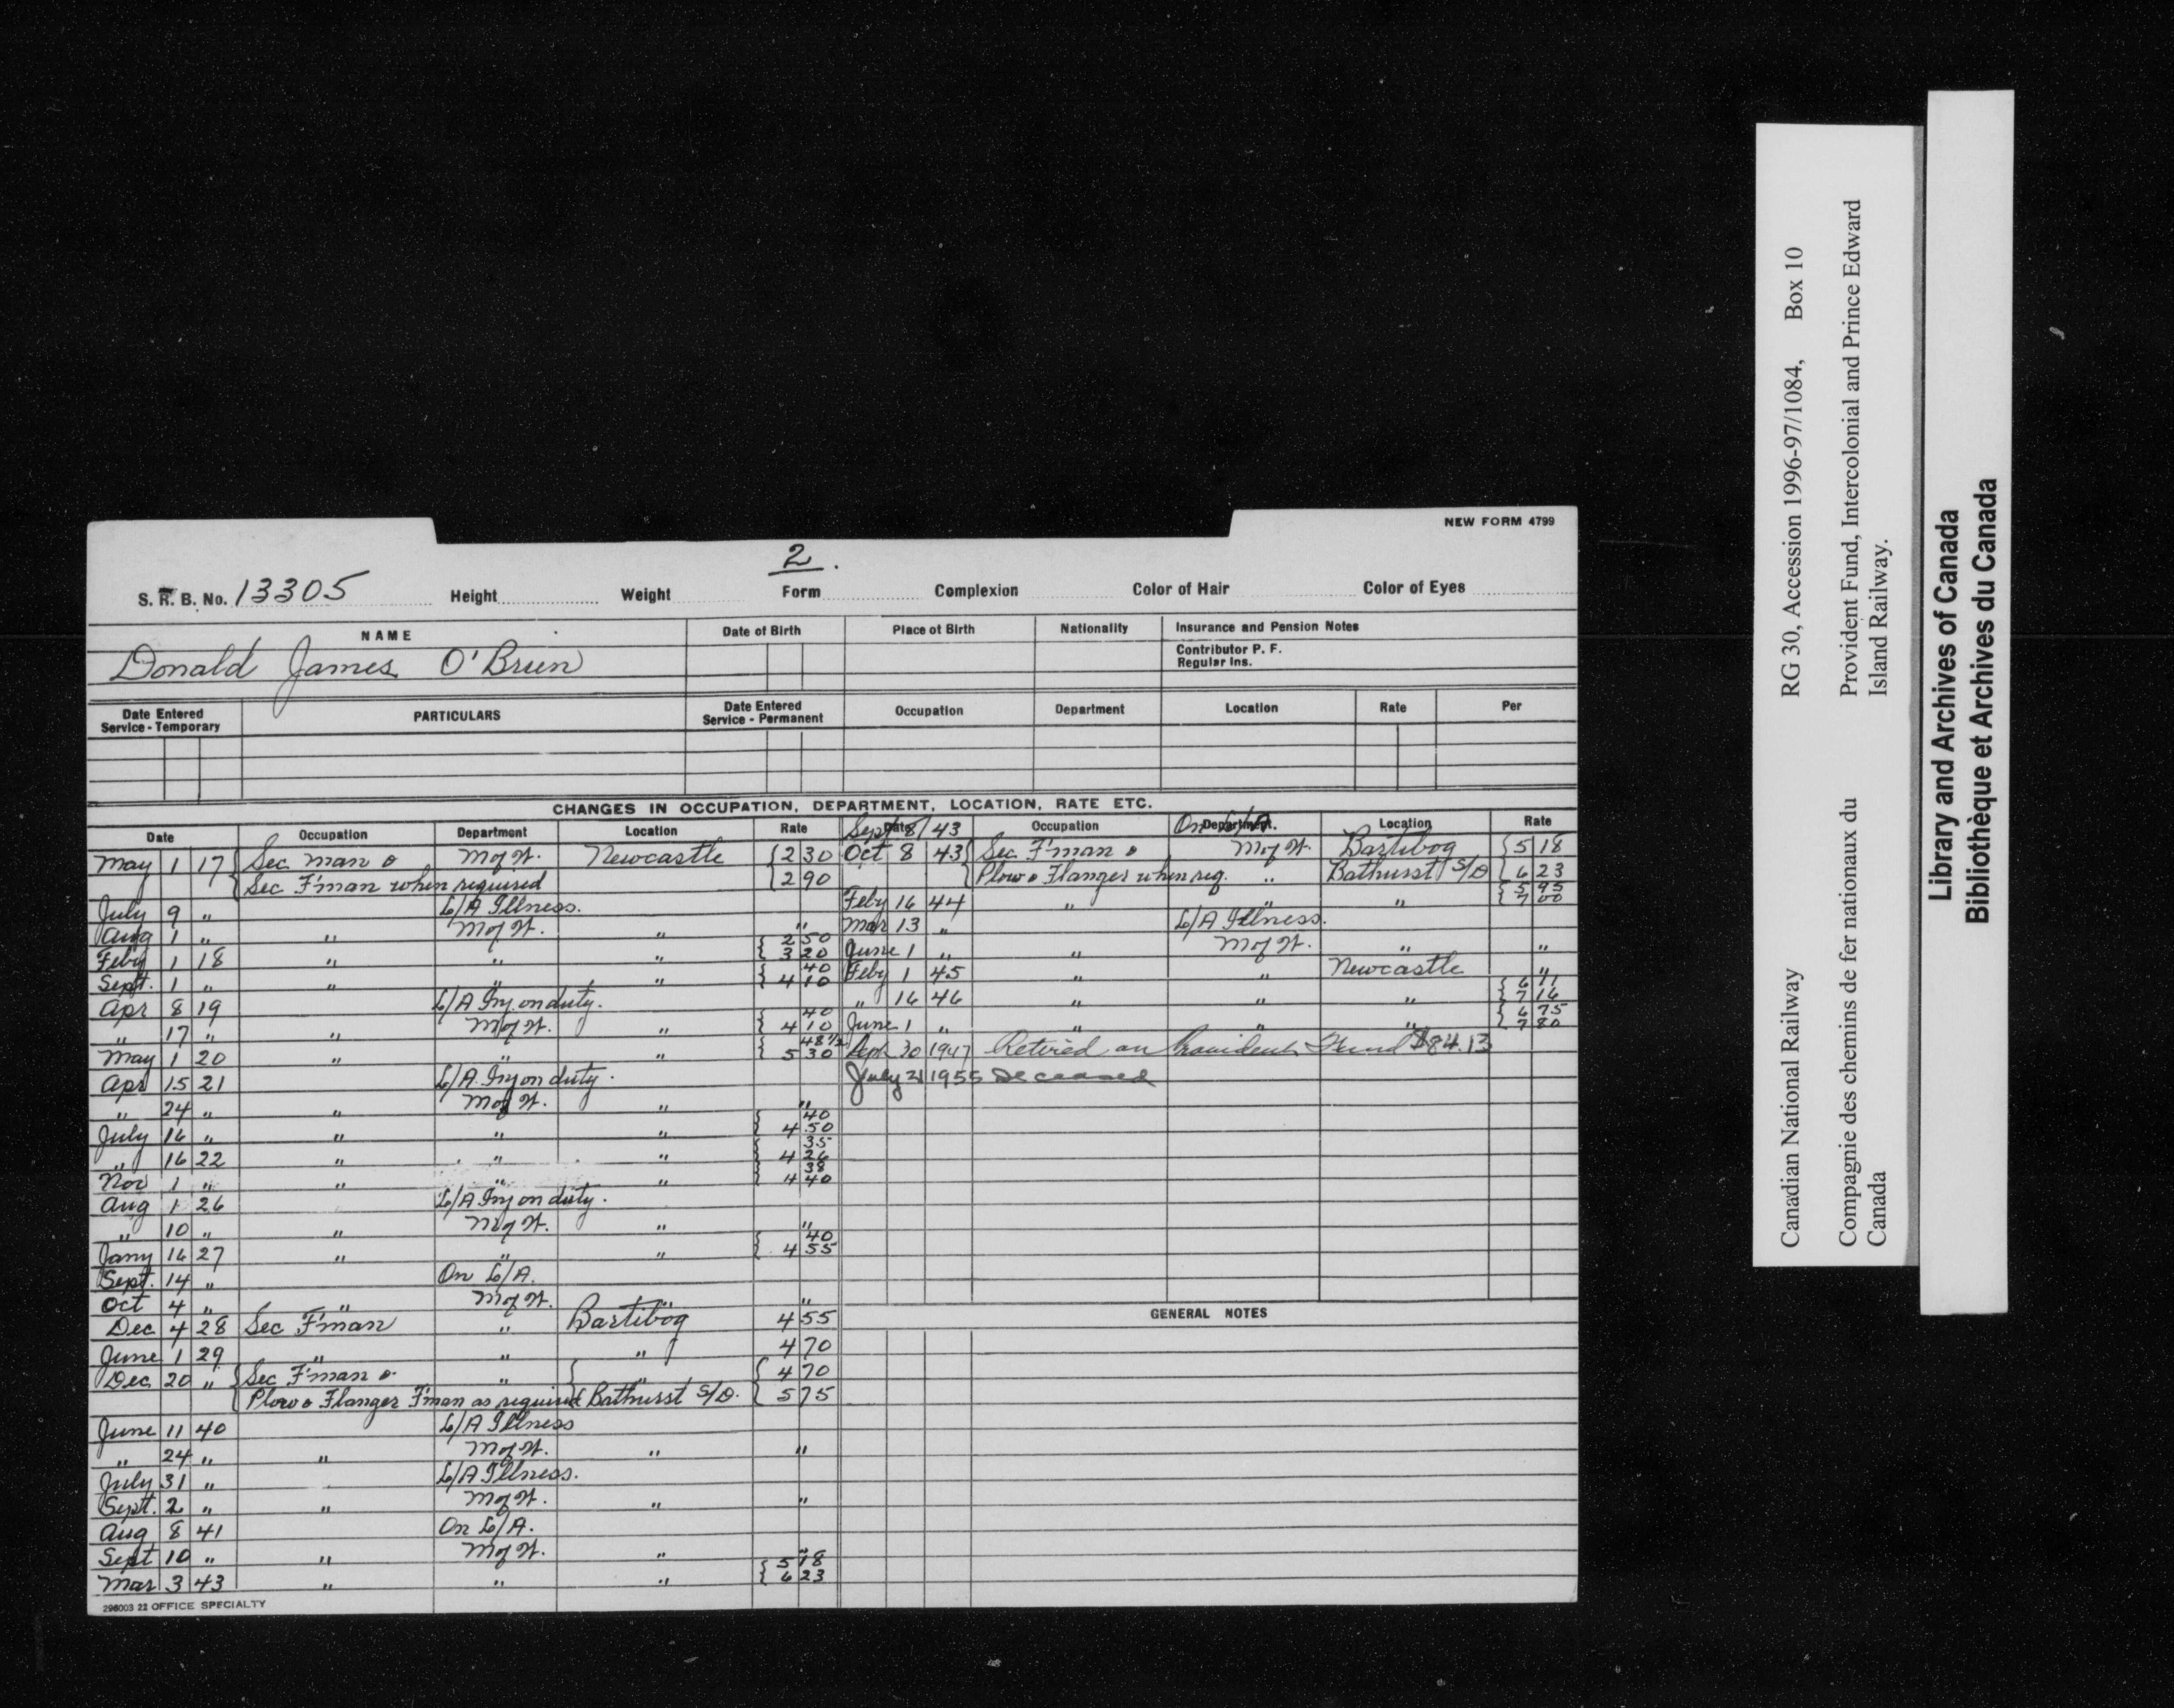 NEW FORM 4799
2.
S. R. B. No. 13305 Height Weight Form Complexion Color of Hair Color of Eyes
NAME Date of Birth Place of Birth Nationality Insurance and Pension Notes
Contributor P. F.
Regular Ins.
Donald James O'Brien
Date Entered Service - Temporary PARTICULARS Date Entered Service - Permanent Occupation Department Location Rate Per
CHANGES IN OCCUPATION, DEPARTMENT, LOCATION, RATE ETC.
Date Occupation Department Location Rate
May 1 17 Sec. man & M of W. Newcastle 2 30
Sec F'man when required 2 90
July 9 " L/A Illness.
Aug 1 " " M of W. " "
Feby 1 18 " " " 2 50 3 20
Sept. 1 " " " " 40 4 10
Apr 8 19 L/A Inj. on duty.
" 17 " " M of W. " 40 4 10
May 1 20 " " " 48½ 5 30
Apr 15 21 L/A Inj on duty.
" 24 " " M of W. " "
July 16 " " " " 40 4 50
" 16 22 " " " 35 4 26
Nov 1 " " " " 38 4 40
Aug 1 26 L/A Inj on duty.
" 10 " " M of W. " "
Jany 16 27 " " " 40 4 55
Sept. 14 " On L/A.
Oct 4 " " M of W. " "
Dec 4 28 Sec F'man " Bartibog 4 55
June 1 29 " " " 4 70
Dec 20 " Sec F'man & " " 4 70
Plow & Flanger F'man as required Bathurst S/D. 5 75
June 11 40 L/A Illness
" 24 " " M of W. " "
July 31 " L/A Illness.
Sept. 2 " " M of W. " "
Aug 8 41 On L/A.
Sept 10 " " M of W. " "
Mar 3 43 " " " 5 18 6 23
296003 22 OFFICE SPECIALTY
Date Occupation Department Location Rate
Sept 8 43 On L/A.
Oct 8 43 Sec. F'man & M of W. Bartibog 5 18
Plow & Flanger when req. " Bathurst S/D 6 23
Feby 16 44 " " " 5 95 7 00
Mar 13 " L/A Illness.
June 1 " " M of W. " "
Feby 1 45 " " Newcastle "
" 16 46 " " " 6 11 7 16
June 1 " " " " 6 75 7 80
30 1947 Retired on Provident Fund $84.13
July 21 1955 Deceased
GENERAL NOTES
Canadian National Railway RG 30, Accession 1996-97/1084, Box 10
Compagnie des chemins de fer nationaux du Canada
Provident Fund, Intercolonial and Prince Edward Island Railway.
Library and Archives of Canada
Bibliothèque et Archives du Canada